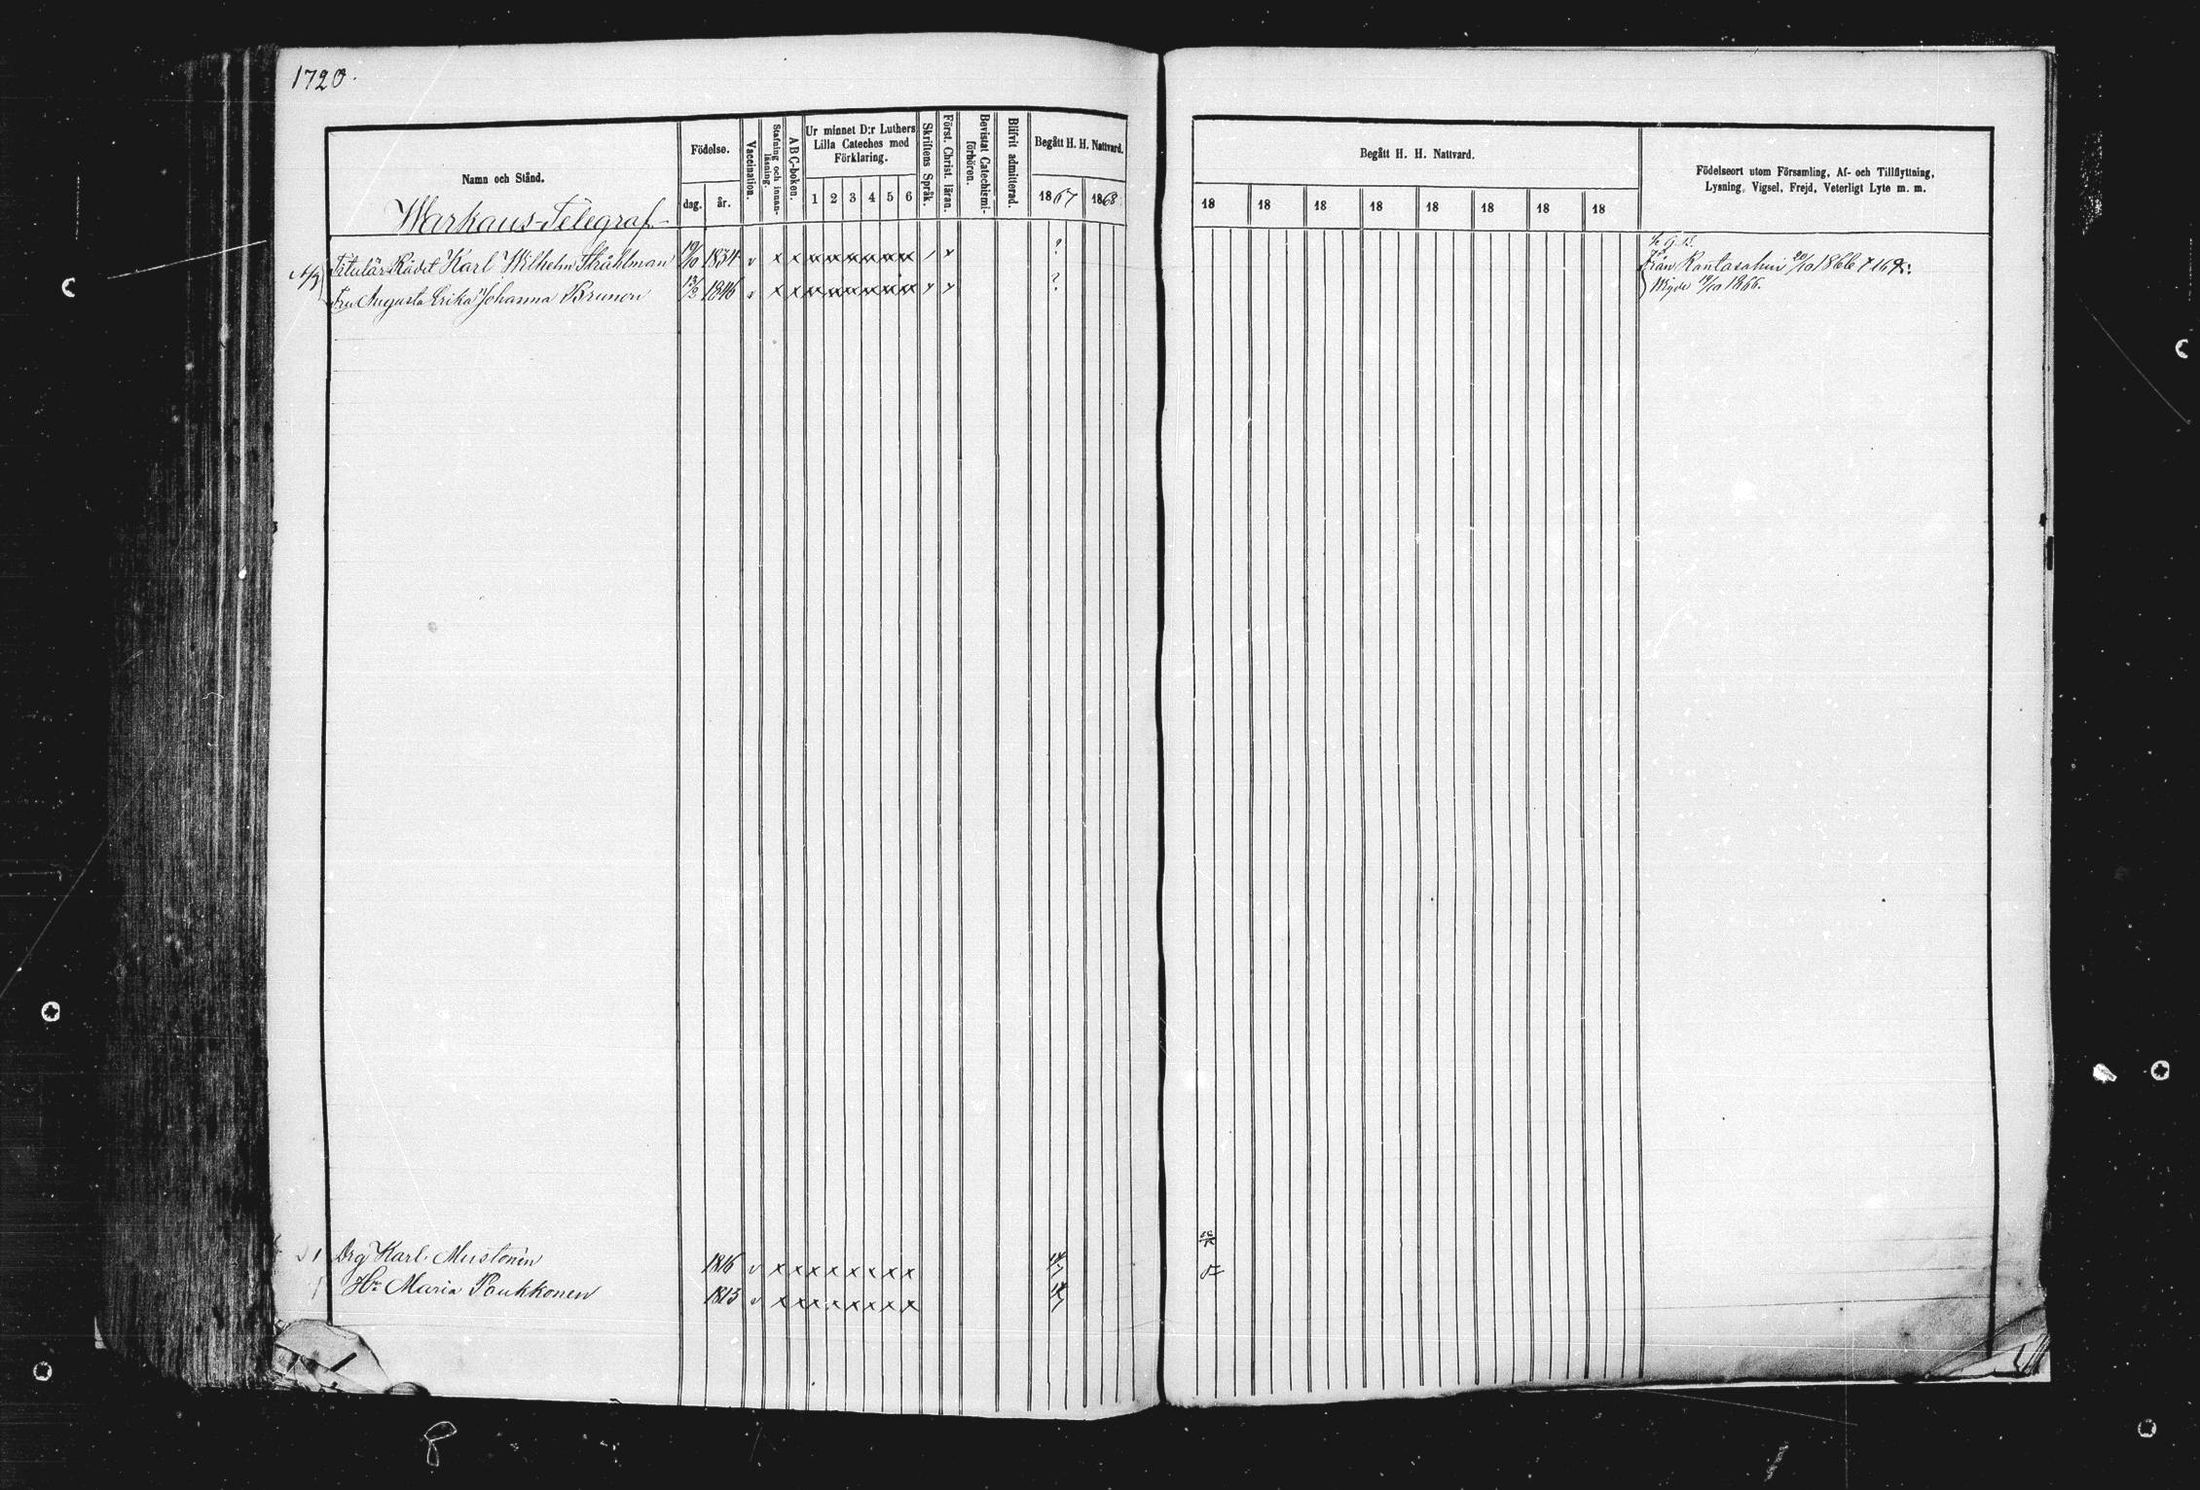 1720.
Namn och Stånd.
Födelse.
dag. år.
Vaccination.
Stafning och innanläsning.
ABC-boken.
Ur minnet D:r Luthers
Lilla Cateches med
Förklaring.
1 2 3 4 5 6
Skriftens Språk.
Först. Christ. läran.
Bevistat Catechismiförhören.
Blifvit admitterad.
Begått H. H. Nattvard.
1867 1868
Begått H. H. Nattvard.
18 18 18 18 18 18 18 18
Födelseort utom Församling, Af- och Tillflyttning,
Lysning, Vigsel, Frejd, Veterligt Lyte m. m.
Warkaus-Telegraf
Titulär Rådet Karl Wilhelm Stråhlman 19/10 1834 v x x xx xx xx xx xx xx / x ?
från Rantasalmi 20/10 1866
Fru Augusta Erika Johanna Brunou 13/2 1846 v x x xx xx xx xx xx xx x x ?
Vigde 1866.
Drg Karl Mustonen 1816 v x x x x x x x x
Hu Maria Paukkonen 1813 v x x x x x x x x